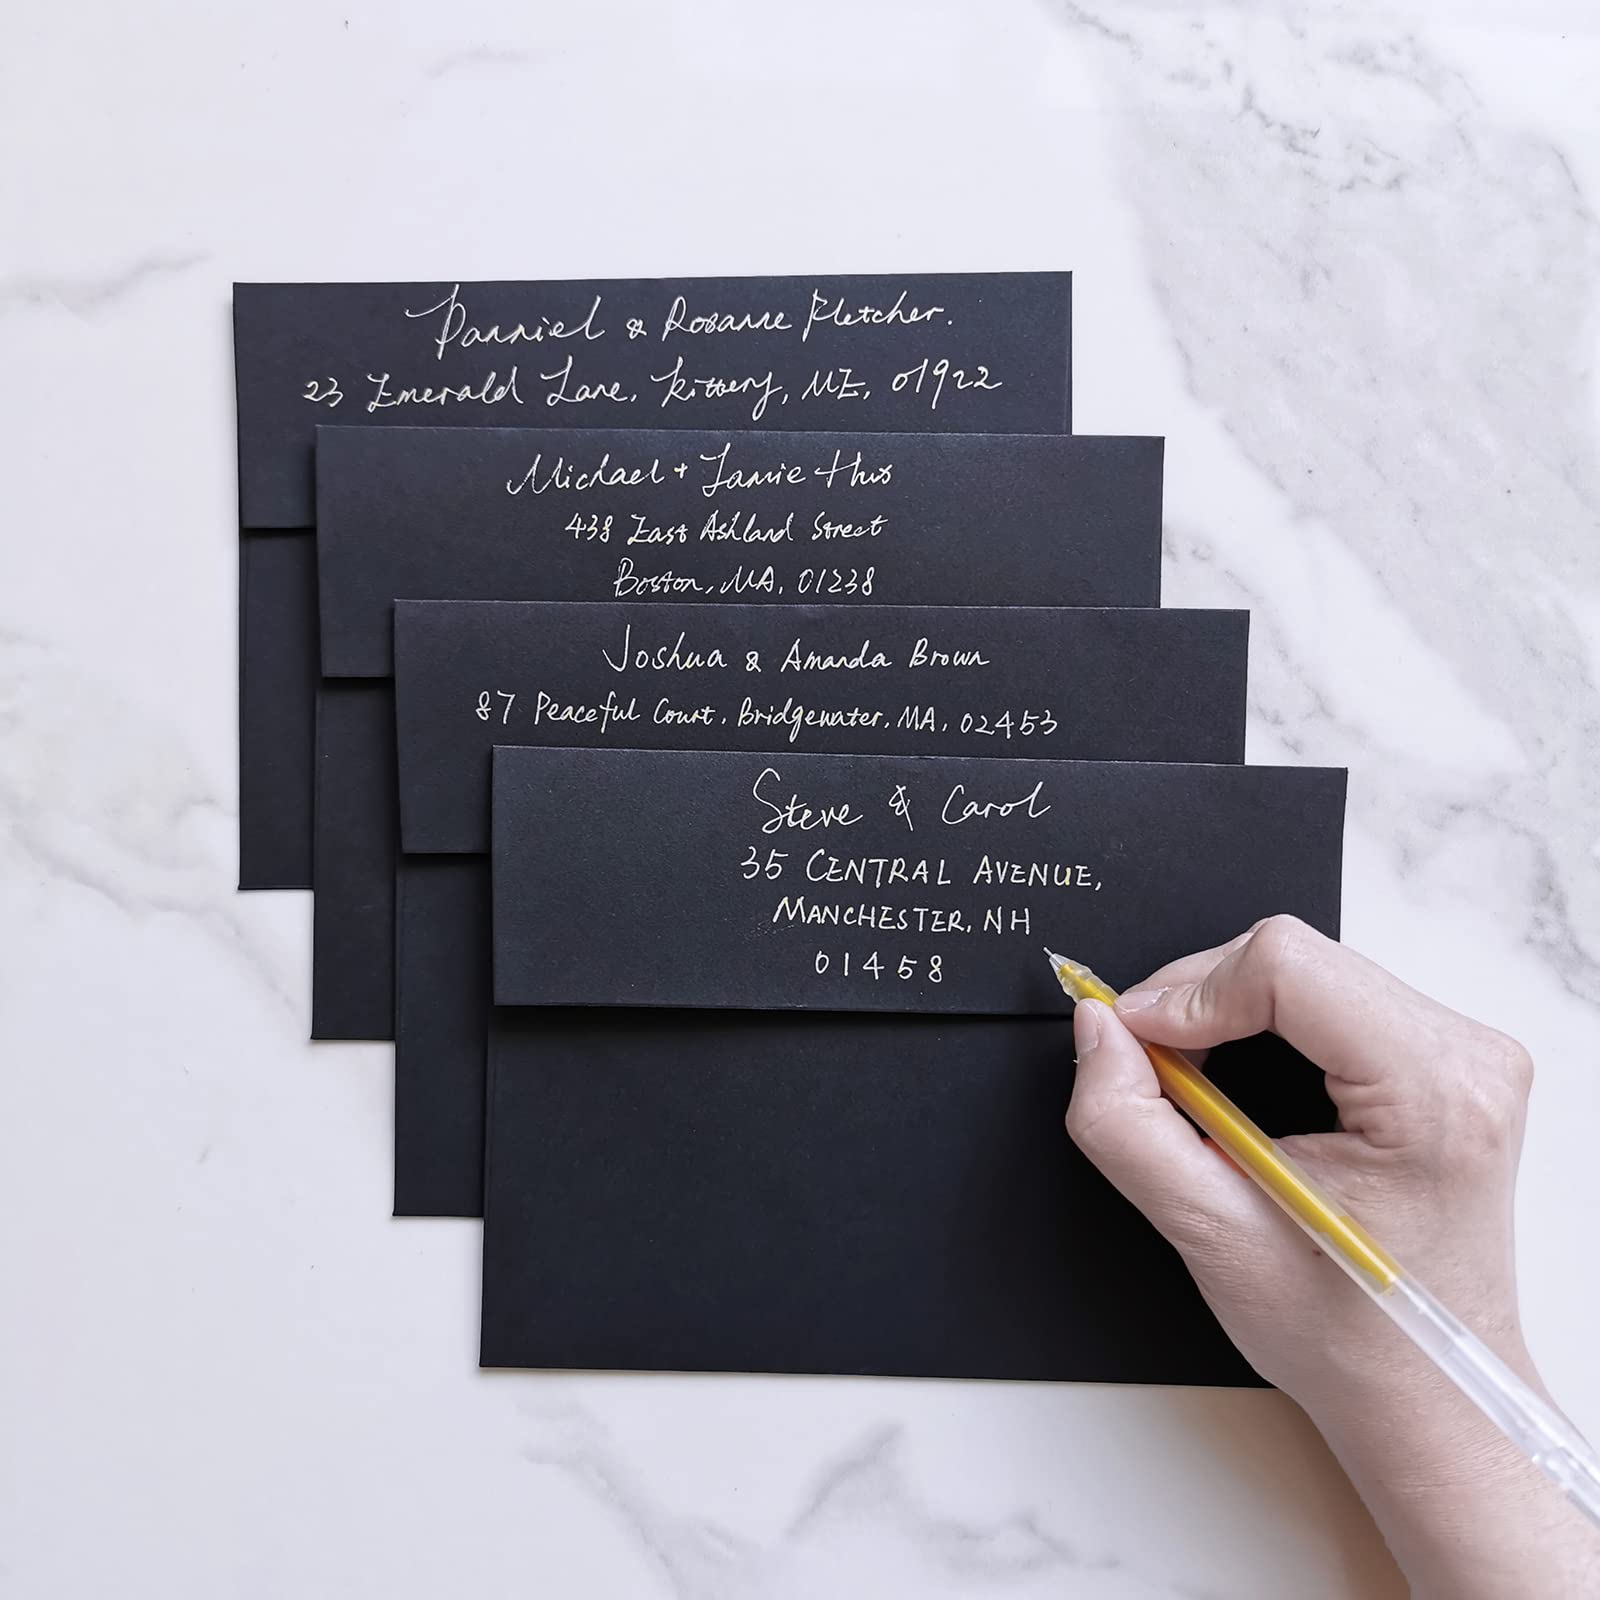 Danniel & Rosanne Fletcher.
23 Emerald Lane, Kittery, ME, 01922
Michael + Jamie Hus
438 East Ashland Street
Boston, MA, 01238
Joshua & Amanda Brown
87 Peaceful Court, Bridgewater, MA, 02453
Steve & Carol
35 CENTRAL AVENUE,
MANCHESTER, NH
01458